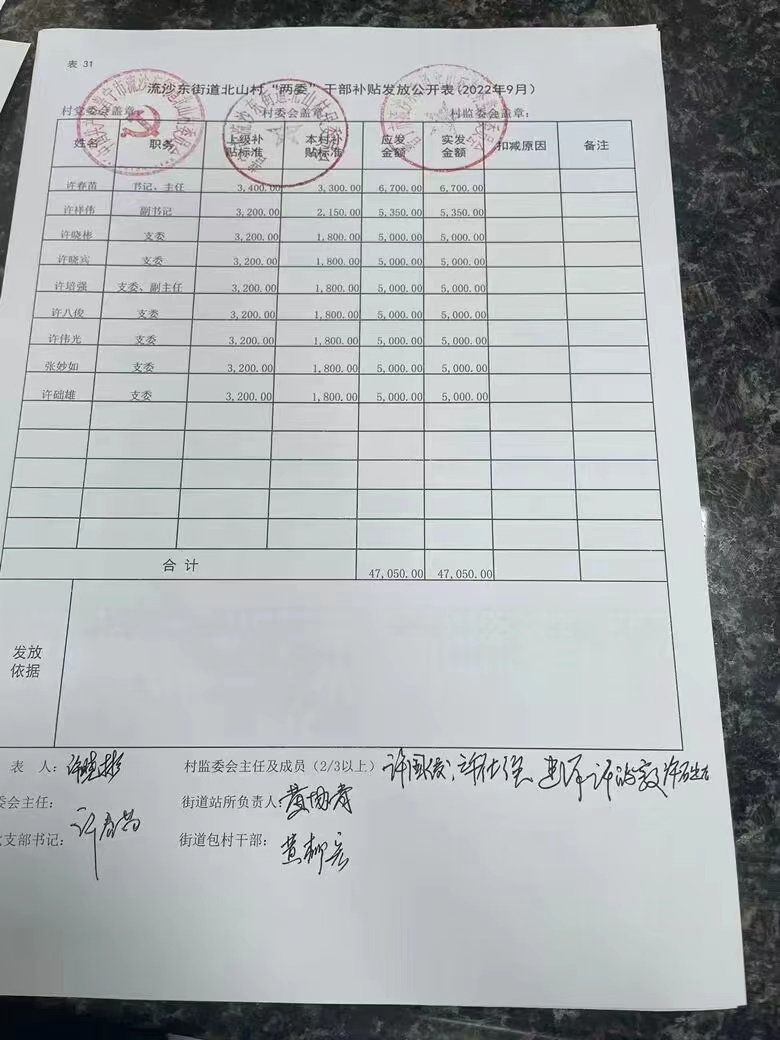 表 31
流沙东街道北山村“两委”干部补贴发放公开表(2022年9月)
村党委会盖章: 村委会盖章: 村监委会盖章:
姓名 职务 上级补贴标准 本村补贴标准 应发金额 实发金额 扣减原因 备注
许春苗 书记、主任 3,400.00 3,300.00 6,700.00 6,700.00
许祥伟 副书记 3,200.00 2,150.00 5,350.00 5,350.00
许晓彬 支委 3,200.00 1,800.00 5,000.00 5,000.00
许晓宾 支委 3,200.00 1,800.00 5,000.00 5,000.00
许培强 支委、副主任 3,200.00 1,800.00 5,000.00 5,000.00
许八俊 支委 3,200.00 1,800.00 5,000.00 5,000.00
许伟光 支委 3,200.00 1,800.00 5,000.00 5,000.00
张妙如 支委 3,200.00 1,800.00 5,000.00 5,000.00
许础雄 支委 3,200.00 1,800.00 5,000.00 5,000.00
合计 47,050.00 47,050.00
发放依据
表 人: 许晓彬 村监委会主任及成员(2/3以上)
委会主任: 街道站所负责人:
支部书记: 许春苗 街道包村干部: